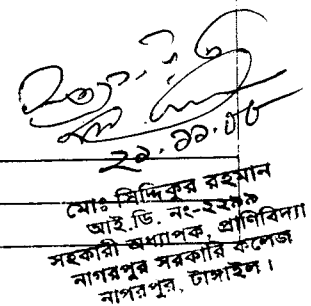 ২৯.১১.০৮
মোঃ ছিদ্দিকুর রহমান
আই.ডি. নং-২২৭৯
সহকারী অধ্যাপক, প্রাণিবিদ্যা
নাগরপুর সরকারি কলেজ
নাগরপুর, টাঙ্গাইল।